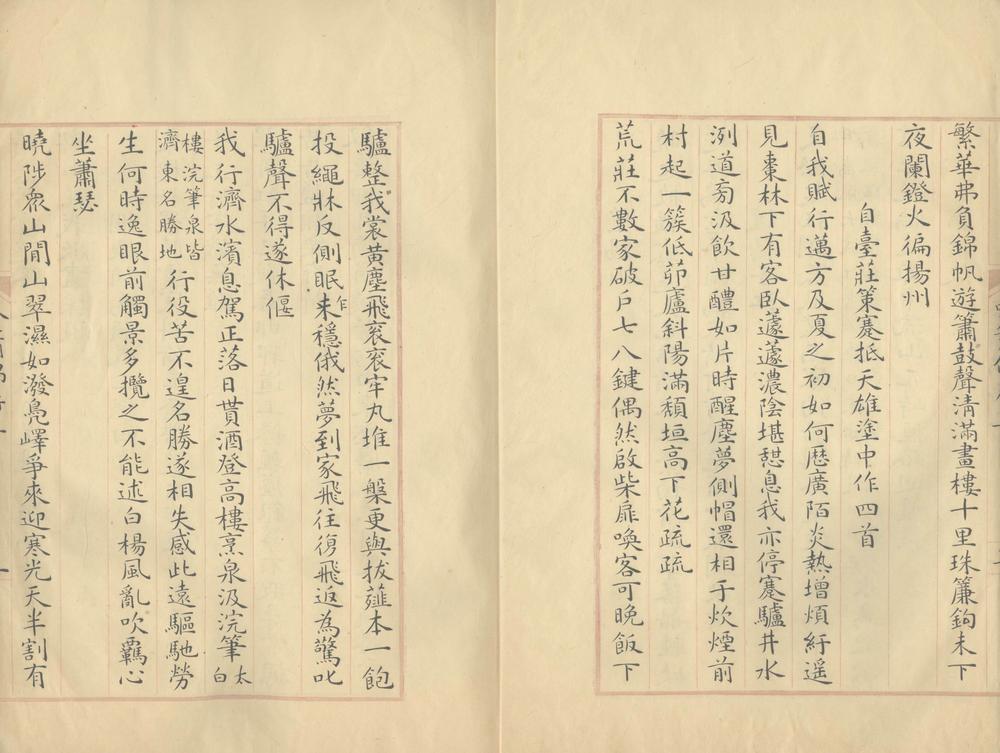 繁華弗負錦帆遊簫鼓聲清滿畫樓十里珠簾鉤未下
夜闌鐙火徧揚州
自臺莊策蹇抵天雄塗中作四首
自我賦行邁方及夏之初如何歷廣陌炎熱增煩紆遥
見棗林下有客臥蘧蘧濃陰堪憩息我亦停蹇驢井水
洌道㫄汲飲甘醴如片時醒塵夢側帽還相于炊煙前
村起一簇低茆廬斜陽滿頽垣高下花疏疏
荒莊不數家破户七八鍵偶然啟柴扉喚客可晚飯下
驢整我裳黄塵飛衮衮牢丸堆一槃更與拔薤本一飽
投繩牀反側眠未乍穩俄然夢到家飛往復飛返為驚叱
驢聲不得遂休偃
我行濟水濱息駕正落日貰酒登高樓烹泉汲浣筆太白
樓浣筆泉皆濟東名勝地行役苦不遑名勝遂相失感此遠驅馳勞
生何時逸眼前觸景多攬之不能述白楊風亂吹羈心
坐蕭瑟
曉陟衆山閒山翠濕如潑鳧嶧爭來迎寒光天半割有